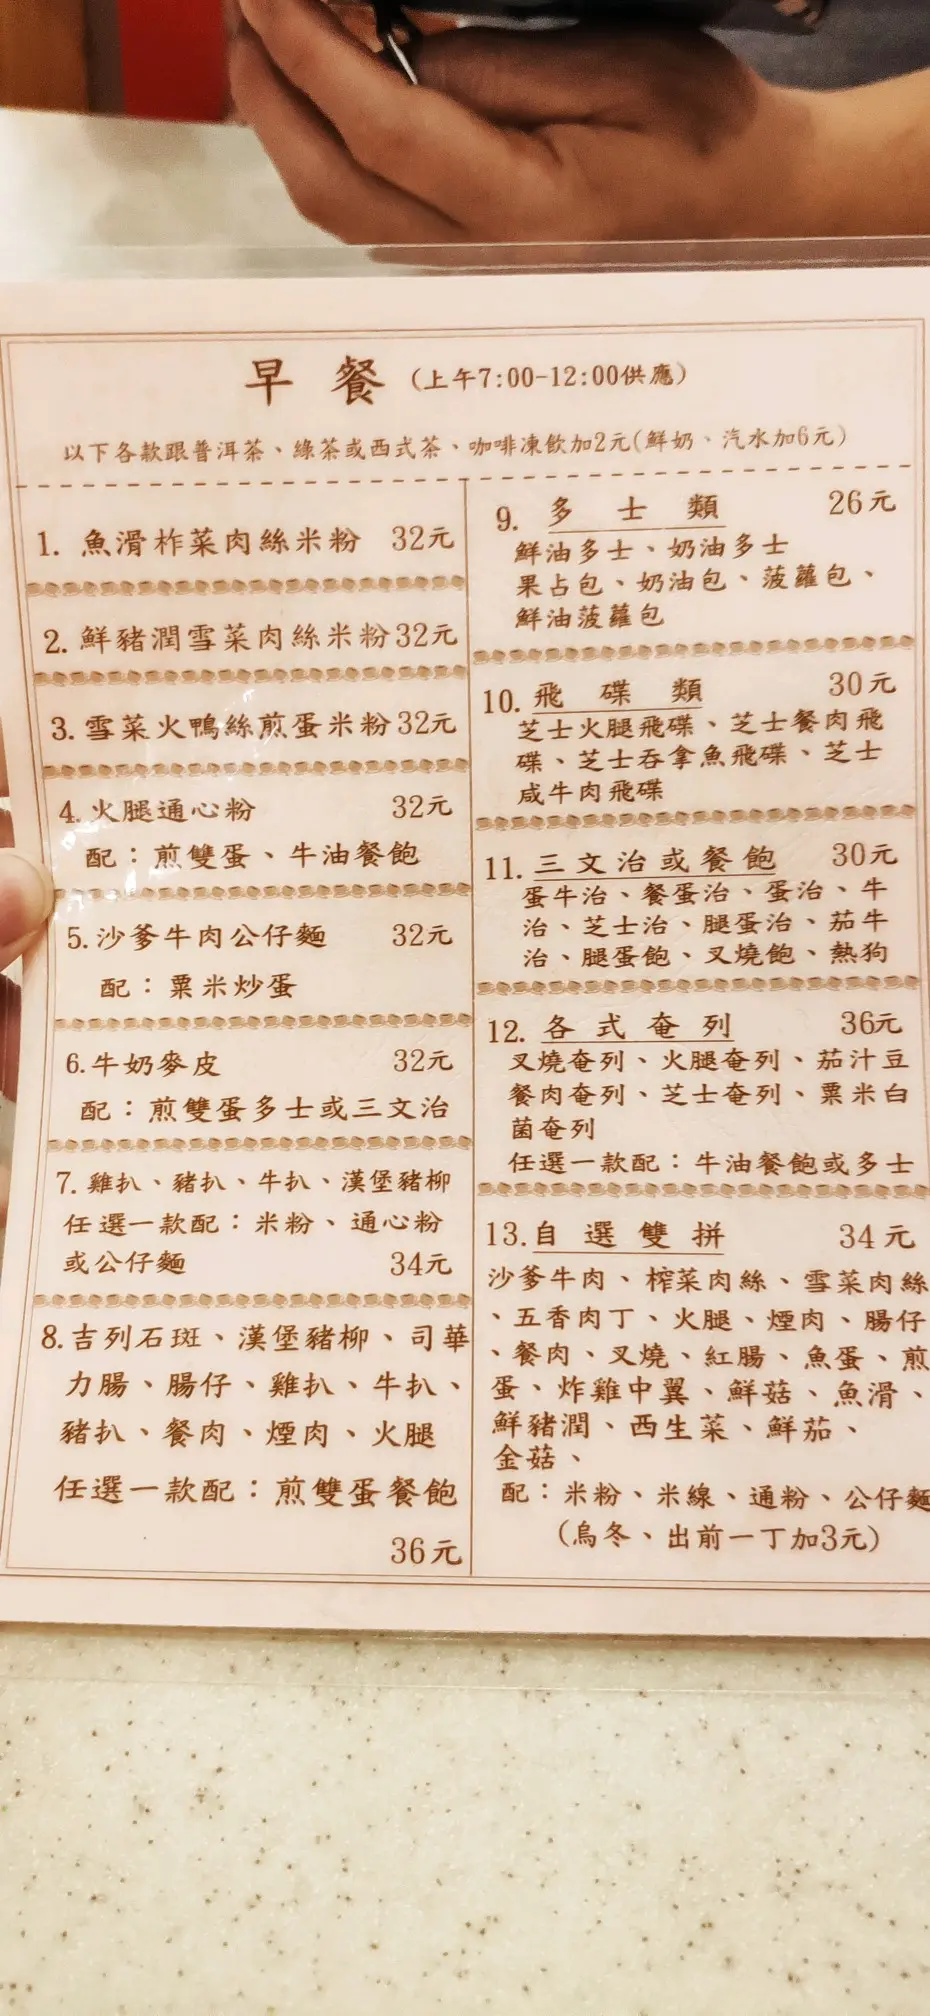 早餐(上午7:00-12:00供應)
以下各款跟普洱茶、綠茶或西式茶、咖啡凍飲加2元(鮮奶、汽水加6元)
1. 魚滑柞菜肉絲米粉 32元
2. 鮮豬潤雪菜肉絲米粉32元
3. 雪菜火鴨絲煎蛋米粉32元
4. 火腿通心粉 32元
配：煎雙蛋、牛油餐飽
5. 沙爹牛肉公仔麵 32元
配：粟米炒蛋
6. 牛奶麥皮 32元
配：煎雙蛋多士或三文治
7. 雞扒、豬扒、牛扒、漢堡豬柳
任選一款配：米粉、通心粉
或公仔麵 34元
8. 吉列石斑、漢堡豬柳、司華
力腸、腸仔、雞扒、牛扒、
豬扒、餐肉、煙肉、火腿
任選一款配：煎雙蛋餐飽
36元
9. 多士類 26元
鮮油多士、奶油多士
果占包、奶油包、菠蘿包、
鮮油菠蘿包
10. 飛碟類 30元
芝士火腿飛碟、芝士餐肉飛
碟、芝士吞拿魚飛碟、芝士
咸牛肉飛碟
11. 三文治或餐飽 30元
蛋牛治、餐蛋治、蛋治、牛
治、芝士治、腿蛋治、茄牛
治、腿蛋飽、叉燒飽、熱狗
12. 各式奄列 36元
叉燒奄列、火腿奄列、茄汁豆
餐肉奄列、芝士奄列、粟米白
菌奄列
任選一款配：牛油餐飽或多士
13. 自選雙拼 34元
沙爹牛肉、榨菜肉絲、雪菜肉絲
、五香肉丁、火腿、煙肉、腸仔
、餐肉、叉燒、紅腸、魚蛋、煎
蛋、炸雞中翼、鮮菇、魚滑、
鮮豬潤、西生菜、鮮茄、
金菇、
配：米粉、米線、通粉、公仔麵
(烏冬、出前一丁加3元)